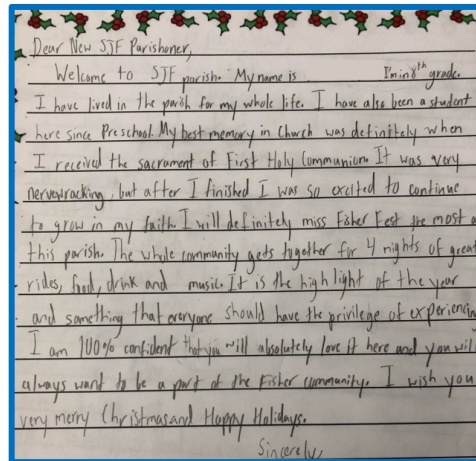 Dear New SJF Parishoner,
Welcome to SJF parish. My name is I'm in 8th grade.
I have lived in the parish for my whole life. I have also been a student
here since Preschool. My best memory in Church was definitely when
I received the sacrament of First Holy Communion. It was very
nervewracking, but after I finished I was so excited to continue
to grow in my faith. I will definitely miss Fisher Fest the most a
this parish. The whole community gets together for 4 nights of great
rides, food, drink and music. It is the highlight of the year
and something that everyone should have the privilege of experiencin
I am 100% confident that you will absolutely love it here and you will
always want to be a part of the Fisher community. I wish you
very merry Christmas and Happy Holidays.
Sincerely,